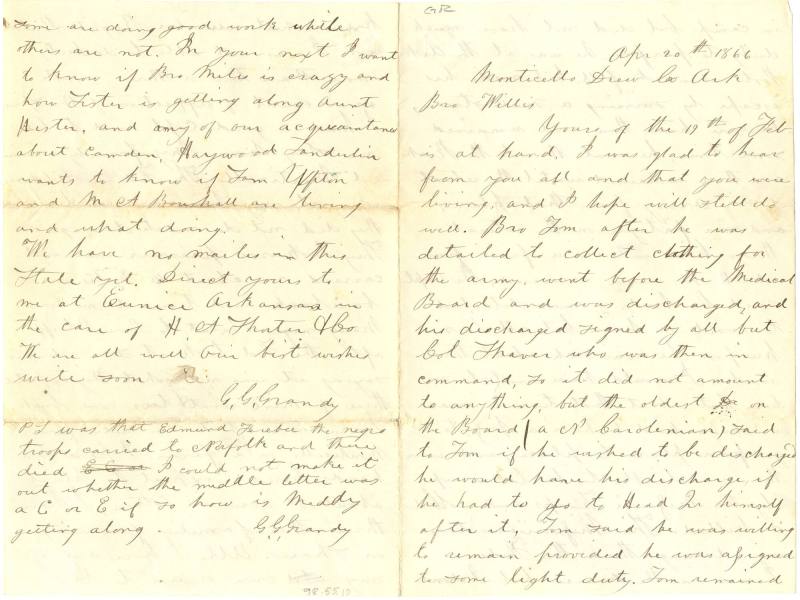 GR
Apr 20th 1866
Monticello Drew Co Ark
Bro Willis
Yours of the 19th of Feb
is at hand. I was glad to hear
from you all and that you were
living, and I hope will still do
well. Bro Tom after he was
detailed to collect clothing for
the army, went before the Medical
Board and was discharged, and
his discharged signed by all but
Col Thaver who was then in
command, so it did not amount
to anything, but the oldest Dr on
the Board (a N Carolenian) said
to Tom if he wished to be discharged
he would have his discharge if
he had to go to Head Qr himself
after it, Tom said he was willing
to remain provided he was assigned
to some light duty. Tom remained
some are doing good work while
others are not. In your next I want
to know if Bro Miles is crazy and
how Sister is getting along Aunt
Hester, and any of our acquaintance
about Camden, Haywood Sanderlin
wants to know if Tom Uppton
and M A are living
and what doing.
We have no mailes in this
State yet. Direct yours to
me at Eunice Arkansas in
the care of H A &Co
We are all well Our best wishes
write soon
G.G. Grandy
P S was that Edmund the negro
troops carried to Nafolk and there
died I could not make it
out whether the middle letter was
a C or E if so how is Meddy
getting along.
G.G. Grandy
98.55.12